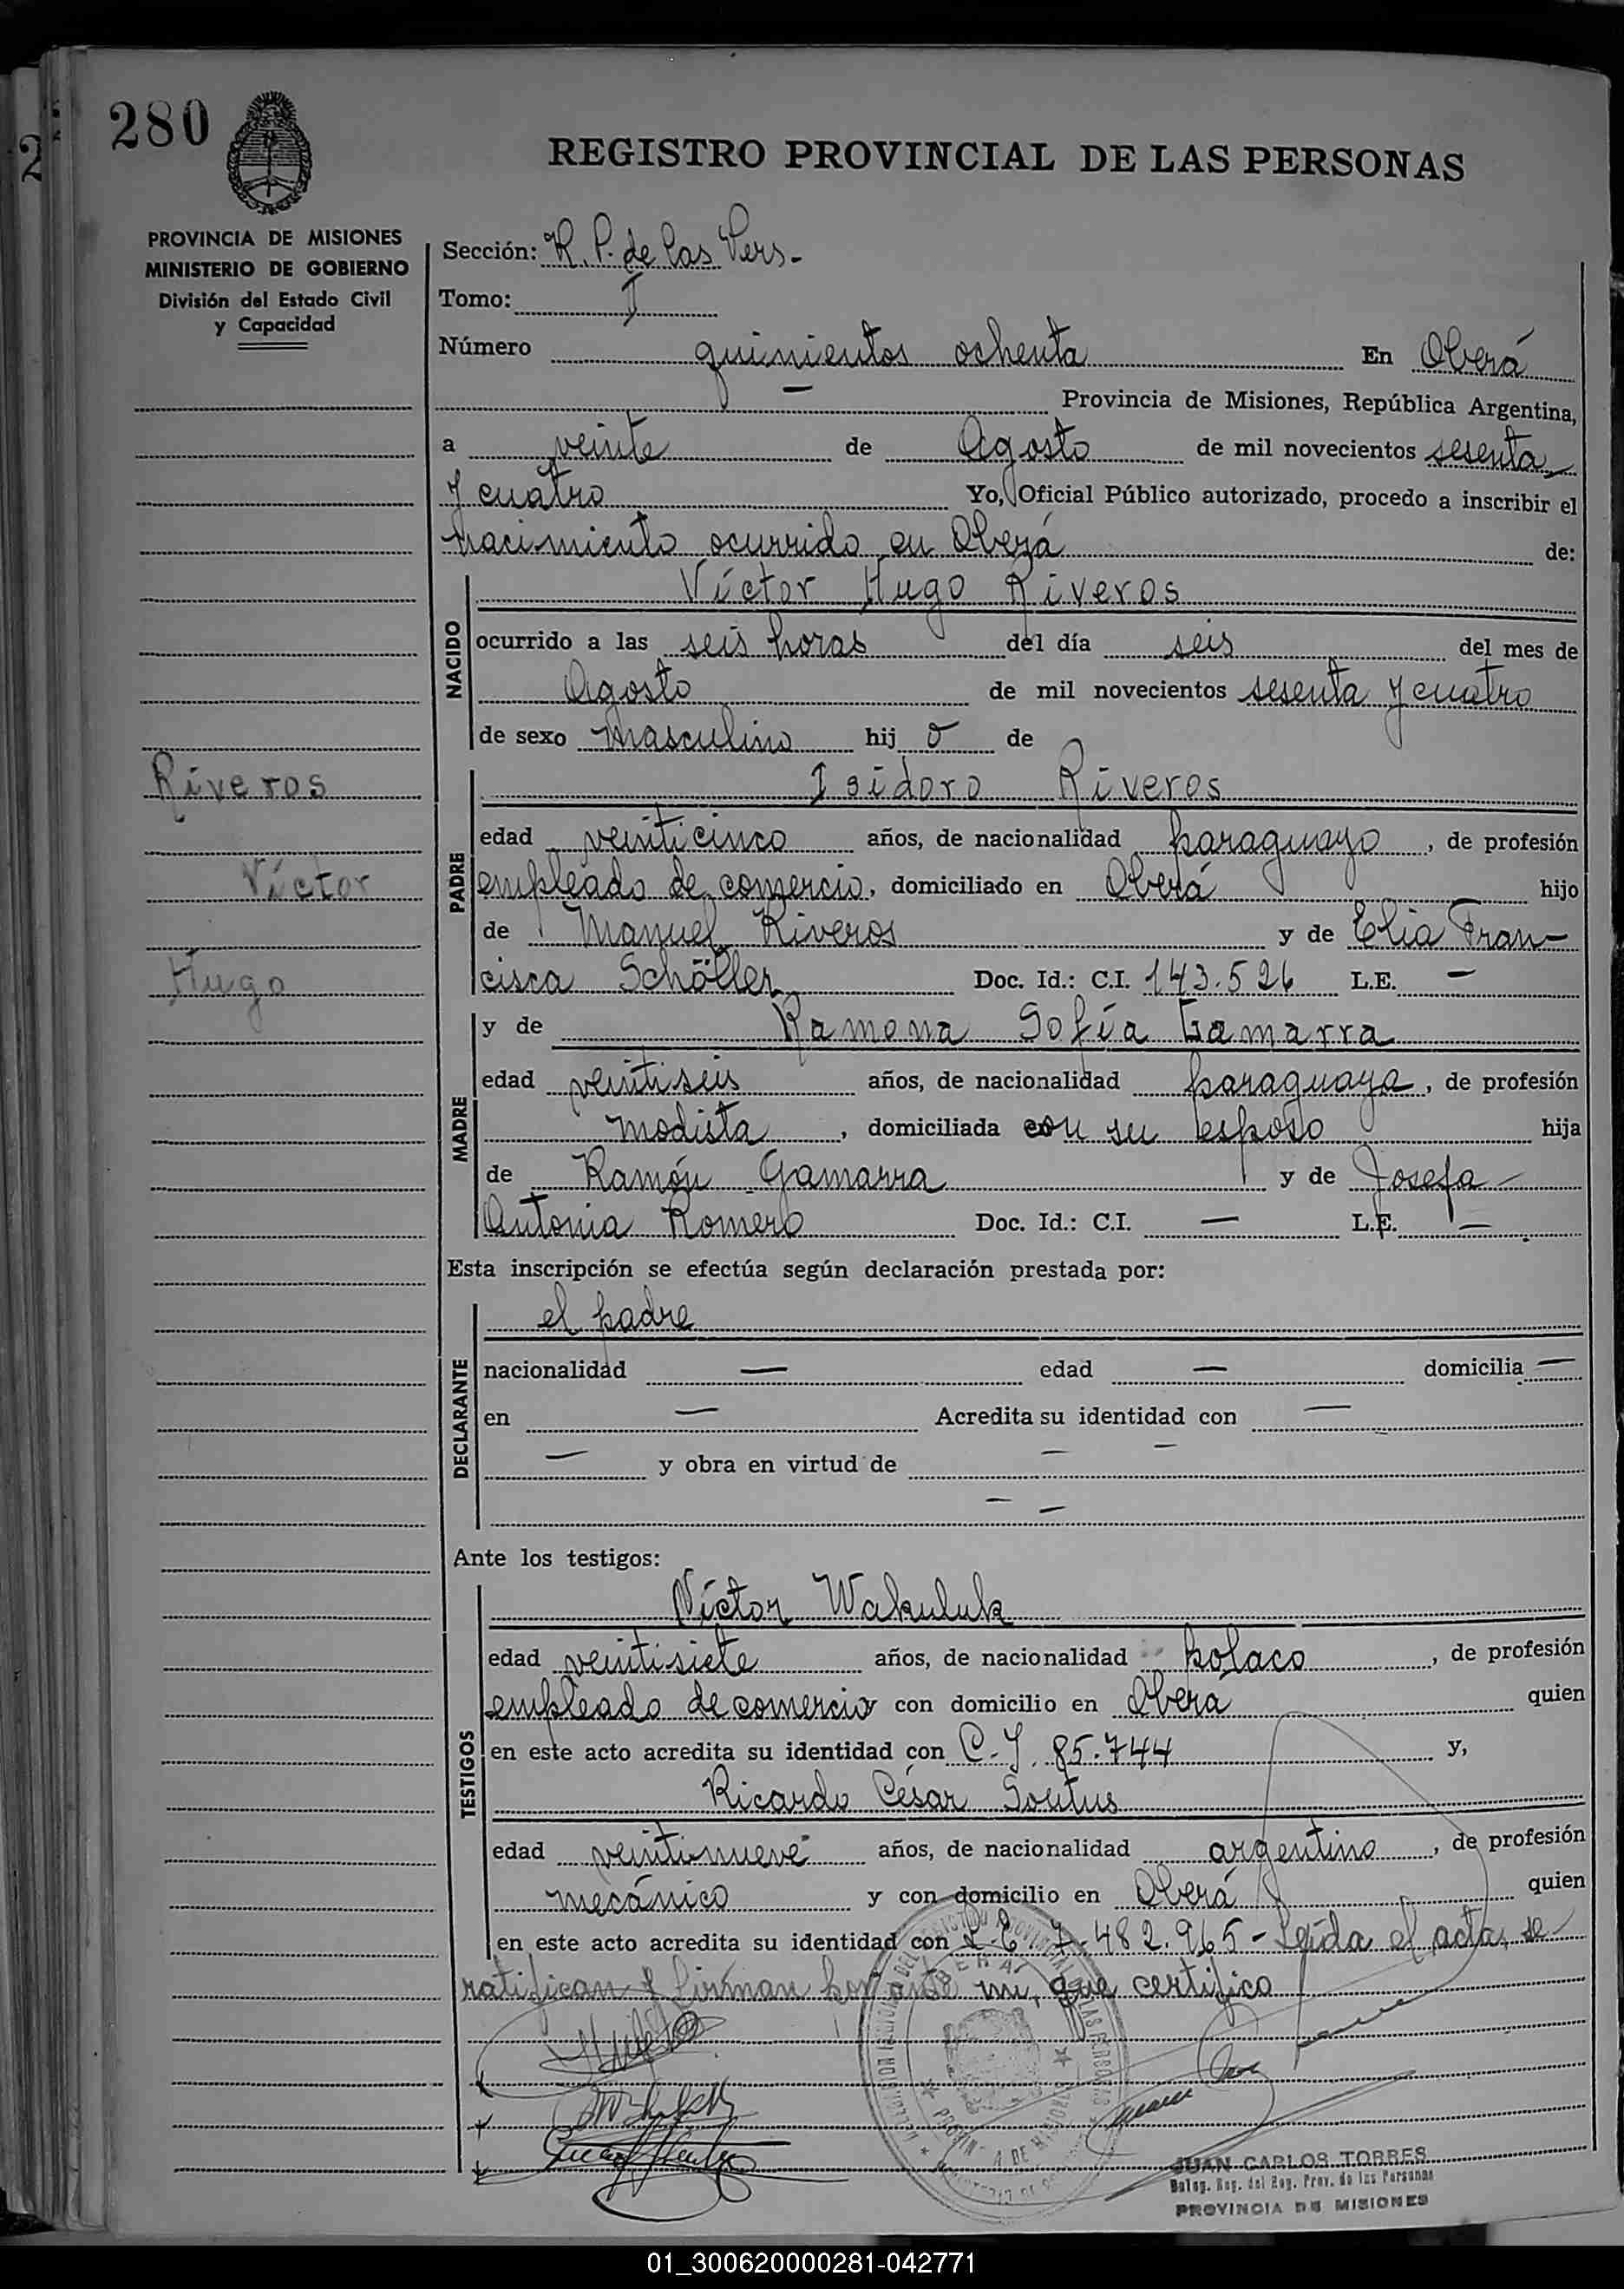 280
REGISTRO PROVINCIAL DE LAS PERSONAS
PROVINCIA DE MISIONES
MINISTERIO DE GOBIERNO
División del Estado Civil
y Capacidad
Sección: R. P. de las Pers.-
Tomo: I
Número quinientos ochenta En Oberá
— Provincia de Misiones, República Argentina,
a veinte de Agosto de mil novecientos sesenta
y cuatro Yo, Oficial Público autorizado, procedo a inscribir el
nacimiento ocurrido en Oberá de:
NACIDO
Víctor Hugo Riveros
ocurrido a las seis horas del día seis del mes de
Agosto de mil novecientos sesenta y cuatro
de sexo masculino hij o de
Riveros
Víctor
Hugo
PADRE
Isidoro Riveros
edad veinticinco años, de nacionalidad paraguayo, de profesión
empleado de comercio, domiciliado en Oberá hijo
de Manuel Riveros y de Elia Fran-
cisca Schöller Doc. Id.: C.I. 143.526 L.E. —
MADRE
y de Ramona Sofía Gamarra
edad veintiseis años, de nacionalidad paraguaya, de profesión
modista, domiciliada con su esposo hija
de Ramón Gamarra y de Josefa
Antonia Romero Doc. Id.: C.I. — L.E. —
Esta inscripción se efectúa según declaración prestada por:
DECLARANTE
el padre
nacionalidad — edad — domicilia —
en — Acredita su identidad con —
— y obra en virtud de — —
— —
Ante los testigos:
TESTIGOS
Víctor Wakuluk
edad veintisiete años, de nacionalidad polaco, de profesión
empleado de comercio con domicilio en Oberá quien
en este acto acredita su identidad con C.I. 85.744 y,
Ricardo César
edad veintinueve años, de nacionalidad argentino, de profesión
mecánico y con domicilio en Oberá quien
en este acto acredita su identidad con L.E. 7.482.965 - Leída el acta, se
ratifican y firman por ante mí, que certifico
JUAN CARLOS TORRES
Deleg. Reg. del Reg. Prov. de las Personas
PROVINCIA DE MISIONES
01_300620000281-042771